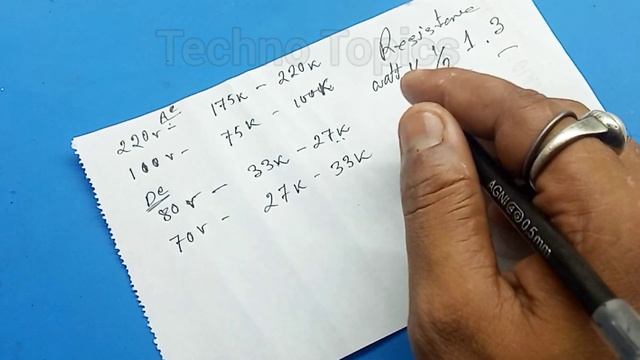 Techno Topics
Resistance
watt ¼ ½ 1 . 3
AC
220v - 175K - 220K
100v - 75K - 100K
DC
80v - 33K - 27K
70v - 27K - 33K
AGNI 0.5mm